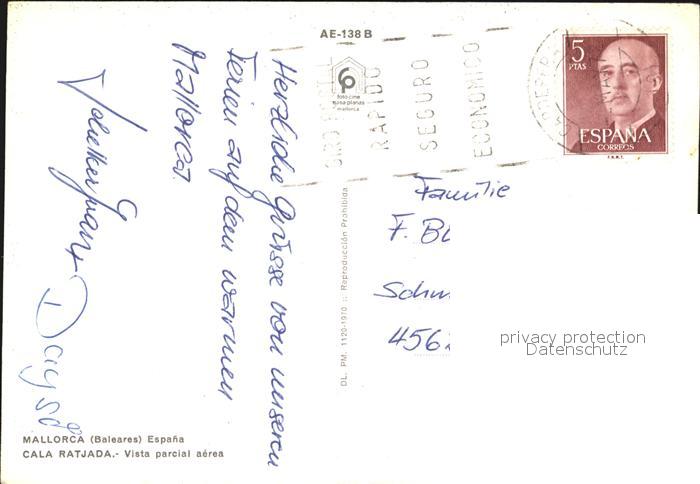 AE-138 B
foto cine
casa planas
mallorca
GIRO POSTAL
RAPIDO
SEGURO
ECONOMICO
5
PTAS
ESPAÑA
CORREOS
F.N.M.T.
Herzliche Grüsse von unseren
Ferien auf dem warmen
Mallorca.
DL. PM. 1120-1970 :: Reproducción Prohibida
Familie
F. BL
Schm
456
privacy protection
Datenschutz
MALLORCA (Baleares) España
CALA RATJADA.- Vista parcial aérea